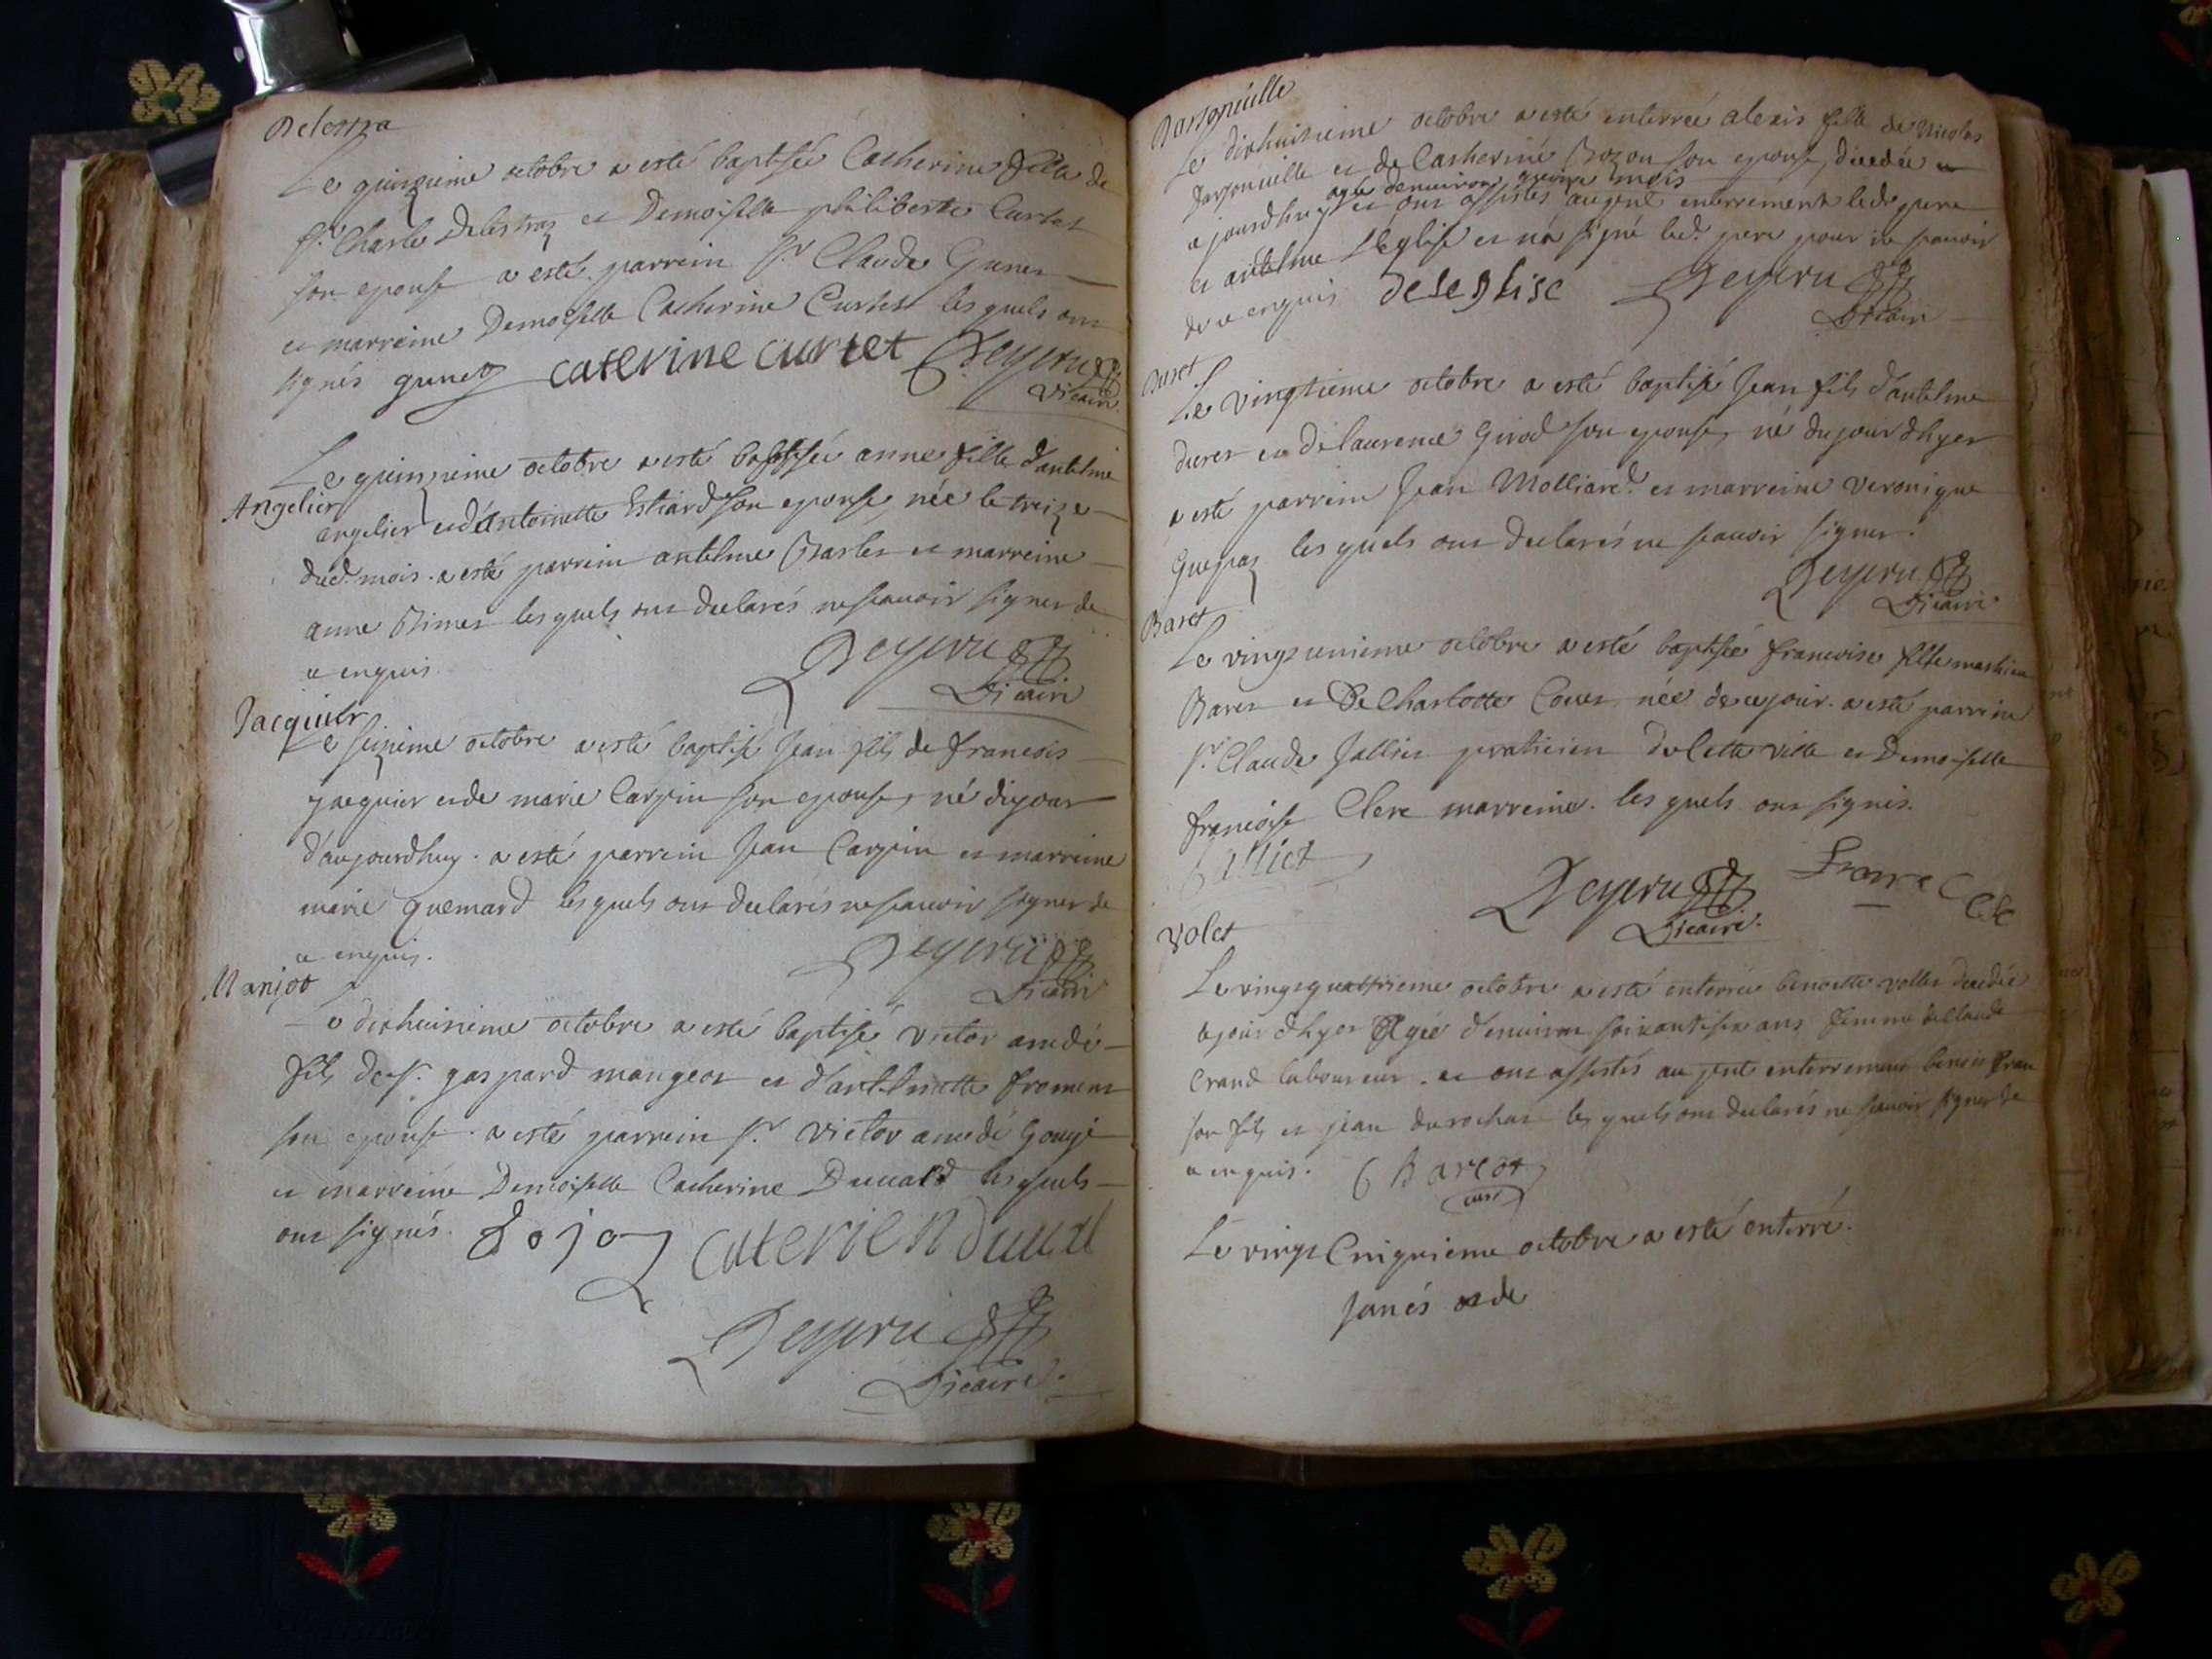 Delestra
Le quinzieme octobre a esté baptisée Catherine fille de
Sr. Charle Delestraz et Demoiselle philiberte Curtet
son epouse a esté parrein Sr Claude Gunet
et marreine Demoiselle Catherine Curtet les quels ont
signés gunet caterine curtet
Vicaire
Angelier
Le quinzieme octobre a esté baptisée anne fille d'antelme
angelier et d'Antoinette son epouse née le treize
dud. mois. a esté parrein antelme et marreine
anne les quels ont declarés ne scauoir signer de
ce enquis.
Vicaire
Jacquier
Le seizieme octobre a esté baptisé Jean fils de francois
jacquier et de marie Carpin son epouse, né du jour
d'aujourdhuy. a esté parrein Jean Carpin et marreine
marie quemard les quels ont declarés ne scauoir signer de
ce enquis.
Vicaire
Manjot
Le dixhuitieme octobre a esté baptisé Victor amedé
fils de Sr. gaspard mangeot et d'antelmette froment
son epouse. a esté parrein Sr. Victor amedé
et marreine Demoiselle Catherine Duuald les quels
ont signés. Caterien
Vicaire.
Le dixhuitieme octobre a esté enterrée alexis fille de Nicolas
et de Catherine Bozon son epouse, decedée
agée denuiron quinze mois
ajourdhuy et ont assistés enterrement led. pere
et antelme Léglise et n'a signé led. pere pour ne scauoir
de ce enquis deleglise
Vicaire
Le vingtieme octobre a esté baptisé Jean fils d'antelme
et de laurence girod son epouse, né du jour dhyer
a esté parrein Jean Molliard et marreine veronique
les quels ont declarés ne scauoir signer.
Vicaire.
Baret
Le vingt unieme octobre a esté baptisée francoise fille mathieu
Baret et De Charlotte née de ce jour. a esté parrein
Sr. Claude Jallier praticien De cette ville et Demoiselle
francoise Clerc marreine. les quels ont signés.
Vicaire.
Volet
Le vingt quattrieme octobre a esté enterrée benoitte vollet decedée
le jour d'hyer Agée d'enuiron soixantesix ans femme de Claude
laboureur. et ont assistés au pnt enterrement benoit
son fils et jean durochat les quels ont declarés ne scauoir signer de
ce enquis. Barcot
curé
Le vingt Cinquieme octobre a esté enterré.